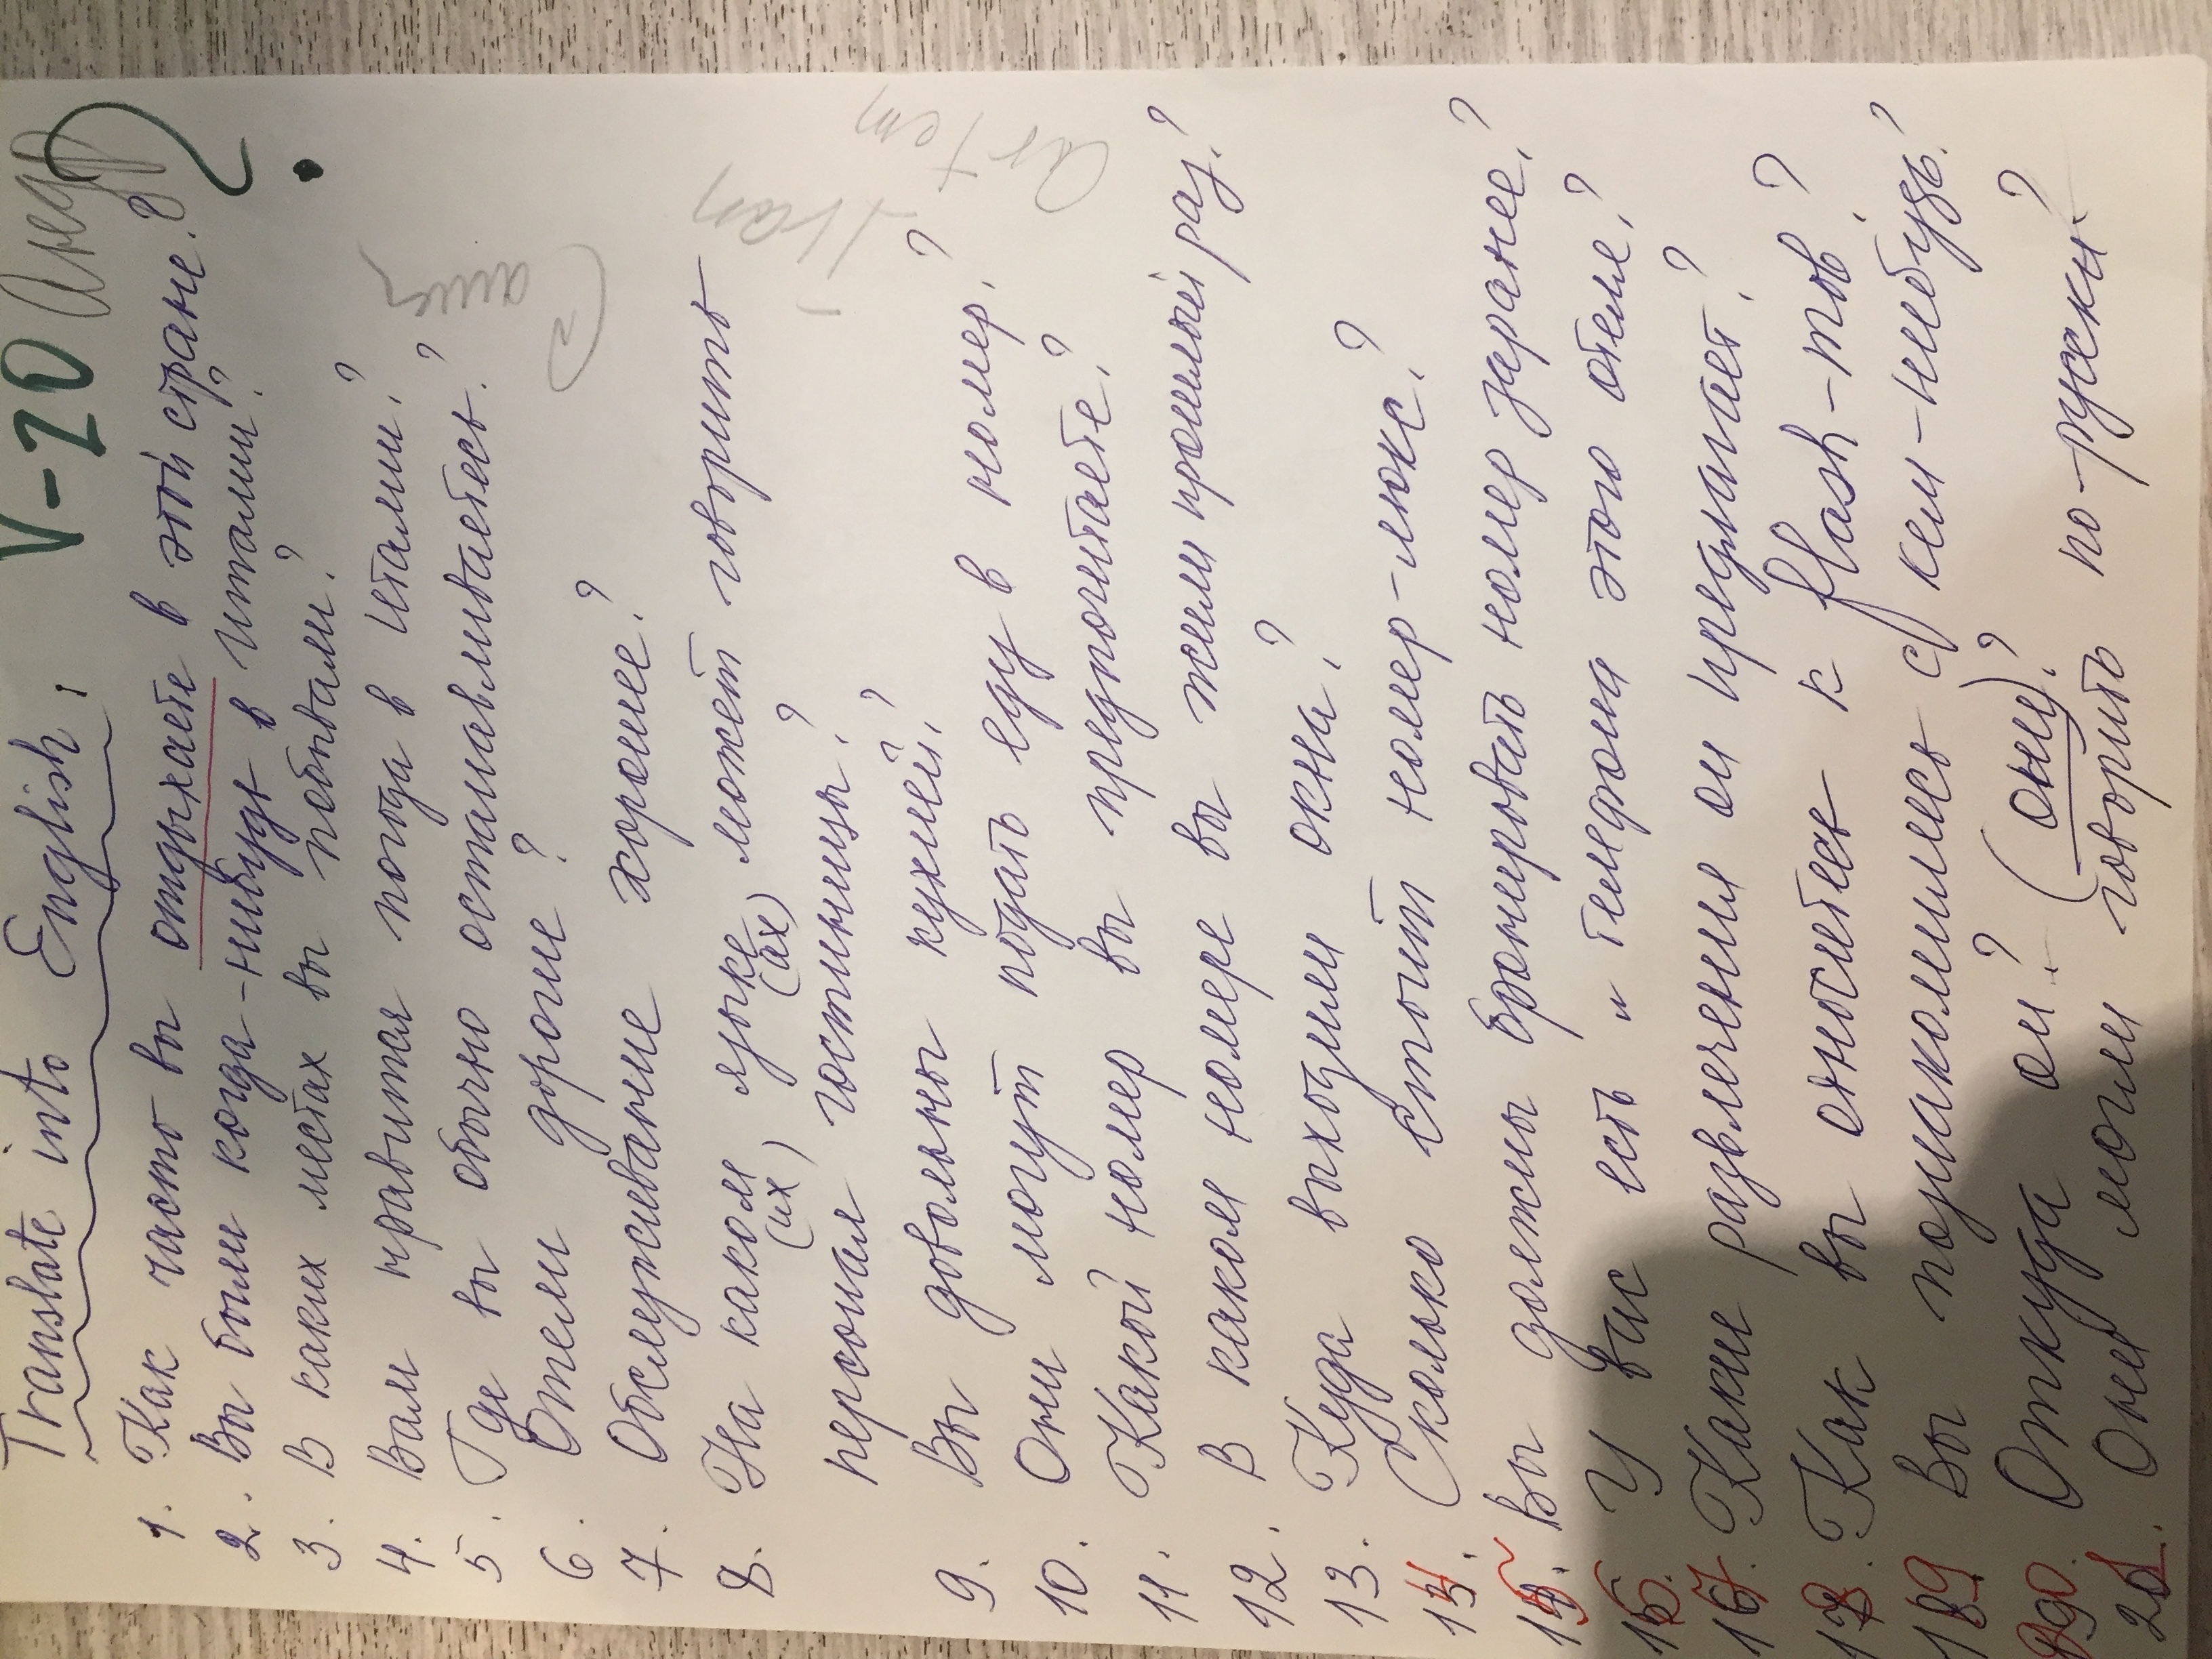 Translate into English. V-20
1. Как часто вы отдыхаете в этой стране?
2. Вы были когда-нибудь в Италии?
3. В каких местах вы побывали?
4. Вам нравится погода в Италии?
5. Где вы обычно останавливаетесь?
6. Отели дорогие?
7. Обслуживание хорошее?
8. На каком языке может говорить
(их) (ах)
персонал гостиницы?
9. Вы довольны кухней?
10. Они могут подать еду в номер?
11. Какой номер вы предпочитаете?
12. В каком номере вы жили прошлый раз?
13. Куда выходили окна?
14. Сколько стоит номер-люкс?
15. Вы должны бронировать номер заранее?
16. У вас есть № телефона этого отеля?
17. Какие развлечения он предлагает?
18. Как вы относитесь к flash-mob?
19. Вы познакомились с кем-нибудь?
20. Откуда он? (они)?
21. Они могли говорить по-русски?
Саша
Artem